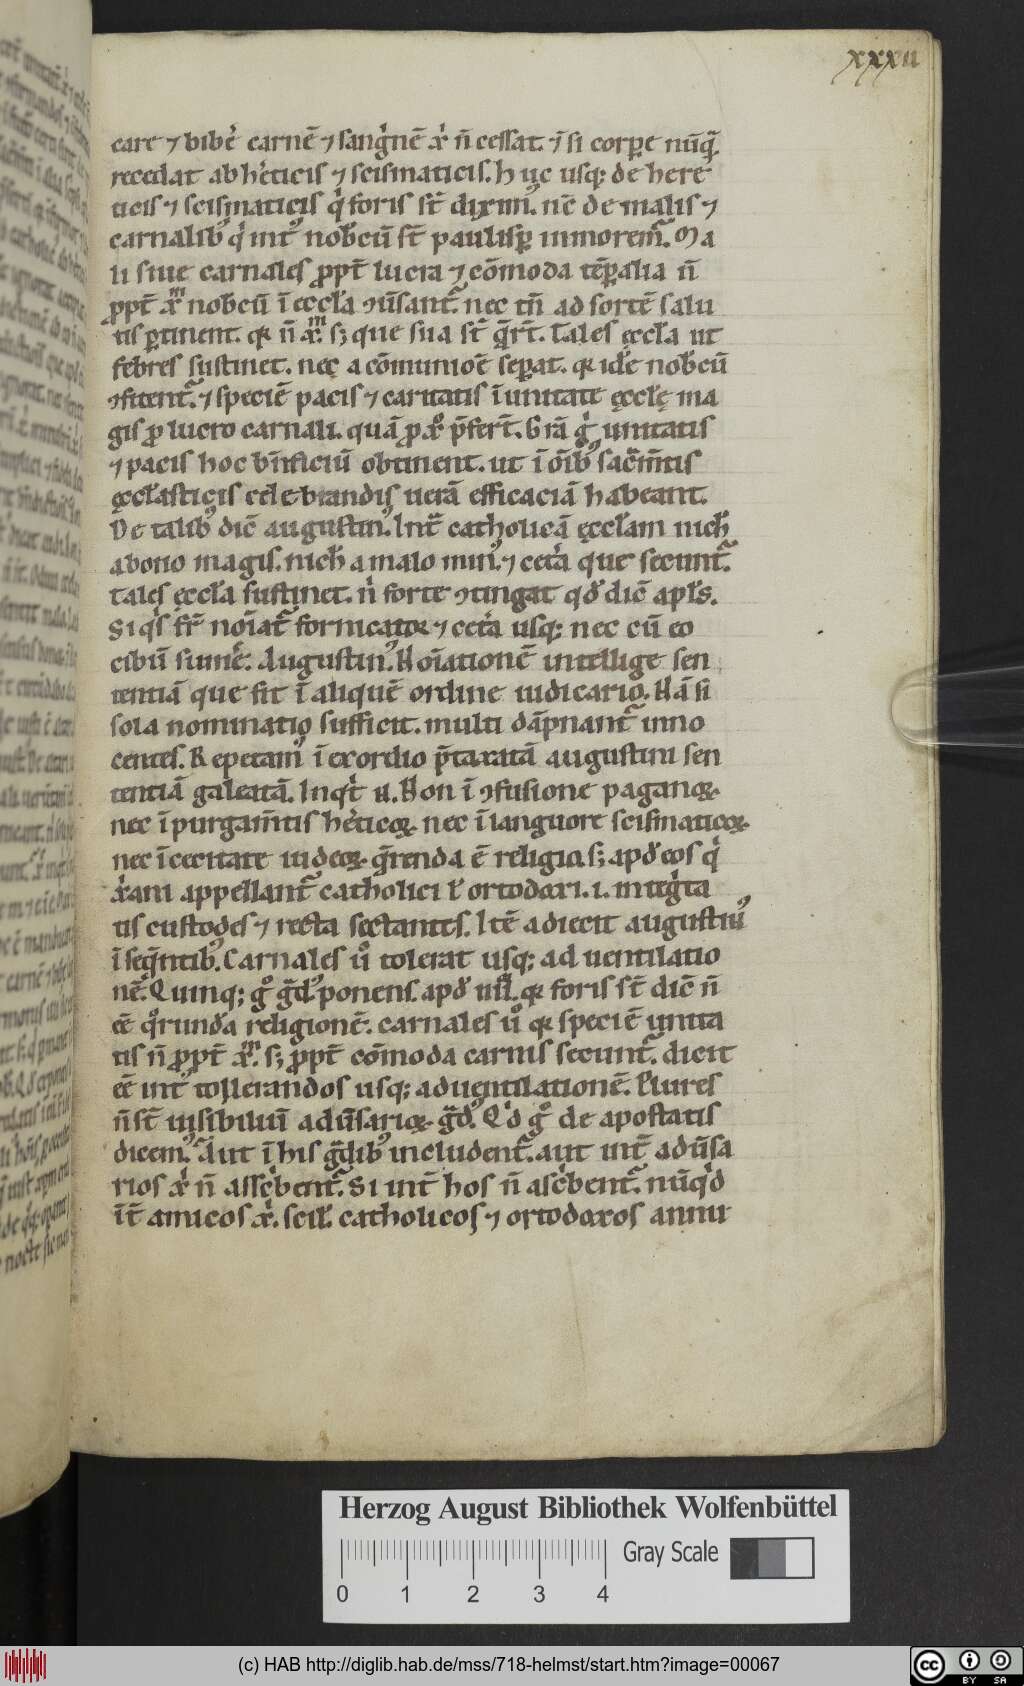 xxxii
care ⁊ bibe͛ carnē ⁊ sangͥnē xͥ n̄ cessat. ⁊ si corꝑe nūqͣ
recedat ab he͛ticis ⁊ scismaticis. huc usq; de here
ticis ⁊ scismaticis qͥ foris st̄ diximꝰ. nc̄ de malis ⁊
carnalibꝰ qͥ int͛ nobcū st̄ paulisꝑ inmoremᷓ. Ma
li siue carnales ꝓpt̄ lucra ⁊ cōmoda tēꝑalia n̄
ꝓpt̄ xͫ nobcū ī eccła ꝯūsantᷓ. nec tn̄ ad sortē salu
tis ꝑtinent. qꝛ n̄ xͫ. s; que sua st̄ q̄rt̄. Tales ęccła ut
febres sustinet. nec a cōmunioē seꝑat. qꝛ idē nobcū
ꝯfitentᷓ. ⁊ speciē pacis ⁊ caritatis ī unitate ęcclę ma
gis ꝓ lucro carnali. quā ꝓ xͦ p̄fert̄. Grā gͥ unitatis
⁊ pacis hoc bn̄ficiū obtinent. ut ī oīb; sac̄mtis
ęccłasticis celebrandis uerā efficaciā habeant.
De talibꝰ dic̄ augustinꝰ. Int͛ catholicā ęccłam nich̄
a bono magis. nich̄ a malo minꝰ. ⁊ cet͛a que secuntᷓ.
tales ęccła sustinet. nͥ forte ꝯtingat qd̄ dic̄ apłs.
Si qͥs fr̄ noīatᷓ fornicatoꝛ ⁊ cet͛a usq; nec cū eo
cibū sume͛. Augustinꝰ. Noīationē intellige sen
tentiā que fit ī aliquē ordine iudicario. Nā si
sola nominatio sufficit. multi dāpnantᷓ inno
centes. Repetamꝰ ī exordio p̄taxatā augustini sen
tentiā galeatā. Inqͥt n̄. Non ī ꝯfusione paganoꝝ.
nec ī purgam̄tis he͛ticoꝝ. nec ī languore scismaticoꝝ.
nec ī cecitate iudeoꝝ. q̄renda ē religio. s; apd̄ eos qͥ
xͥani appellantᷓ catholici ł ortodoxi. i. integͥta
tis custodes ⁊ recta sectantes. Itē adiecit augustinꝰ
ī seq̄ntibꝰ. Carnales uͦ tolerat usq; ad uentilatio
nē. Quinq; gͦ gͣdꝰ ponens. apd̄ iiii. qꝛ foris st̄ dic̄ n̄
eē qͦrunda religionē. carnales uͦ qꝛ speciē unita
tis n̄ ꝓpt̄ xͫ. s; ꝓpt̄ cōmoda carnis secuntᷓ. dicit
eē int͛ tollerandos usq; ad uentilationē. Plures
n̄ st̄ uisibiliū adūsarioꝝ gͣdꝰ. Qͥd gͦ de apostatis
dicemꝰ. Aut ī his gͣdibꝰ includentᷓ. aut int͛ adūsa
rios xͥ n̄ assc͛bentᷓ. Si int͛ hos n̄ asc͛bentᷓ. nūqͥd
īt̄ amicos xͥ. scil̄. catholicos ⁊ ortodoxos annu
Herzog August Bibliothek Wolfenbüttel
Gray Scale
0 1 2 3 4
(c) HAB http://diglib.hab.de/mss/718-helmst/start.htm?image=00067
cc BY SA